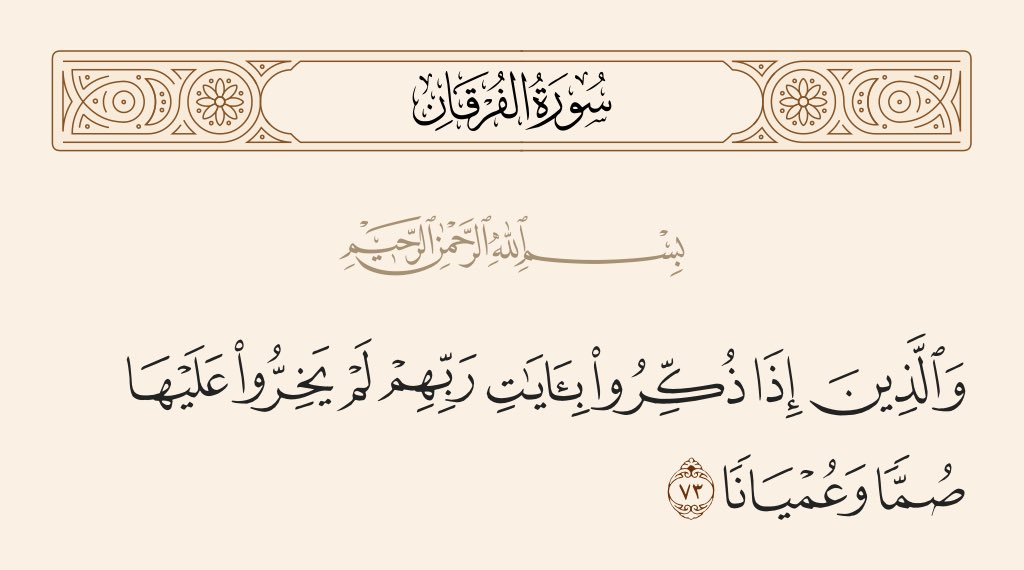 سُورَةُ الْفُرْقَانِ
بِسْمِ ٱللَّهِ ٱلرَّحْمَٰنِ ٱلرَّحِيمِ
وَٱلَّذِينَ إِذَا ذُكِّرُوا۟ بِـَٔايَـٰتِ رَبِّهِمْ لَمْ يَخِرُّوا۟ عَلَيْهَا
صُمًّا وَعُمْيَانًا ٧٣